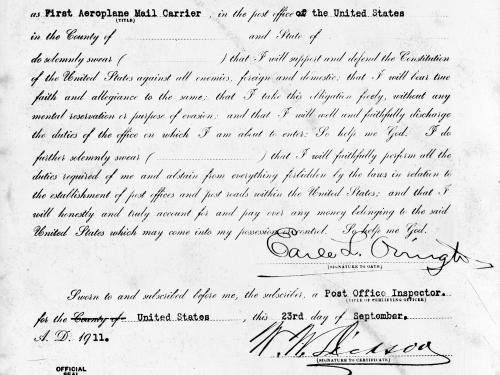 as First Aeroplane Mail Carrier, in the post office of the United States
(TITLE)
in the County of and State of
do solemnly swear ( ) that I will support and defend the Constitution
of the United States against all enemies, foreign and domestic; that I will bear true
faith and allegiance to the same; that I take this obligation freely, without any
mental reservation or purpose of evasion; and that I will well and faithfully discharge
the duties of the office on which I am about to enter: So help me God. I do
further solemnly swear ( ) that I will faithfully perform all the
duties required of me and abstain from everything forbidden by the laws in relation to
the establishment of post offices and post roads within the United States; and that I
will honestly and truly account for and pay over any money belonging to the said
United States which may come into my possession or control. So help me God.
Earle L. Ovington
(SIGNATURE TO OATH)
Sworn to and subscribed before me, the subscriber, a Post Office Inspector.
(TITLE OF QUALIFYING OFFICER)
for the County of United States, this 23rd day of September,
A. D. 1911.
(SIGNATURE TO CERTIFICATE)
OFFICIAL
SEAL